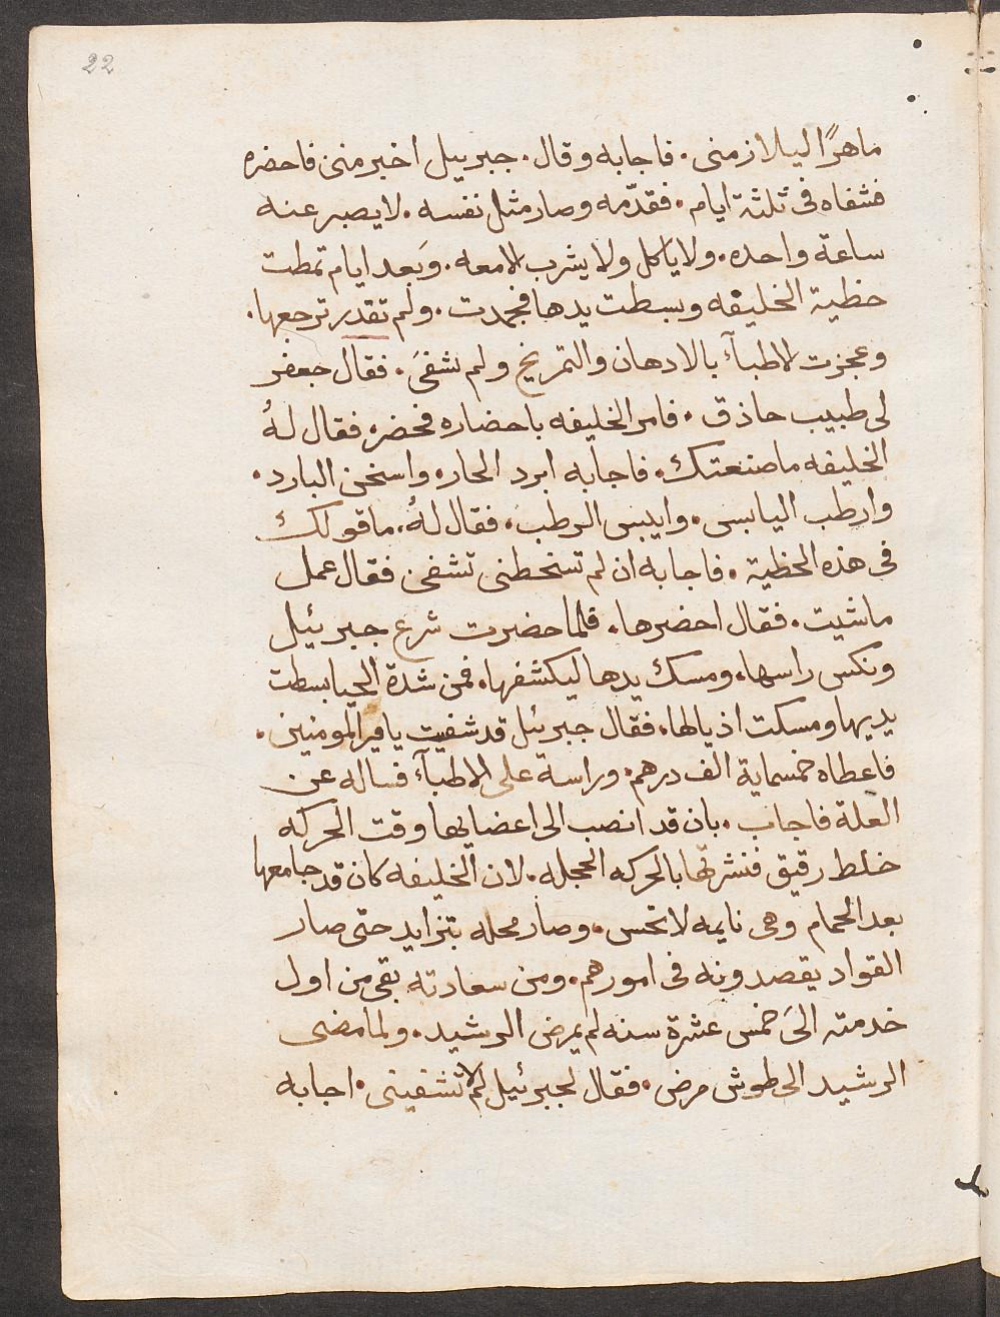 22
ماهرًا ليلازمنى . فاجابه وقال . جبرييل اخبر منى فاحضره
فشفاه فى ثلثة ايام . فقدّمه وصار مثل نفسه . لا يصبر عنه
ساعة واحده . ولا ياكل ولا يشرب الا معه . وَبعد ايام تمطت
حظية الخليفه وبسطت يدها فجمدت . ولم تقدر ترجعها .
وعجزت الاطبآء بالادهان والتمريخ ولم تشفىَ . فقال جعفر
لى طبيب حاذق . فامر الخليفه باحضاره فحضر . فقال لهُ
الخليفه ما صنعتك . فاجابه ابرد الحار . واسخن البارد .
وارطب اليابس . وايبس الرطب . فقال لهُ . ما قولك
فى هذه الحظية . فاجابه ان لم تسخطنى تشفى فقال عمل
ما شيت . فقال احضرها . فلما حضرت شرع جبرئيل
ونكس راسها . ومسك يدها ليكشفها . فمن شدة الحيا بسطت
يديها ومسكت اذيالها . فقال جبرئيل قد شفيت يا امير المومنين .
فاعطاه خمسماية الف درهم . وراسة على الاطبآء فساله عن
العلة فاجاب . بان قد انصب الى اعضايها وقت الحركه
خلط رقيق فنشرتها بالحركه العجله . لان الخليفه كان قد جامعها
بعد الحمام وهى نايمه لا تحس . وصار محله يتزايد حتى صار
القواد يقصدونه فى امورهم . ومن سعادته بقى من اول
خدمته الىَ خمس عشرة سنه لم يمرض الرشيد . ولما مضى
الرشيد الى طوش مرض . فقال لجبرئيل لم لا تشفينى . اجابه